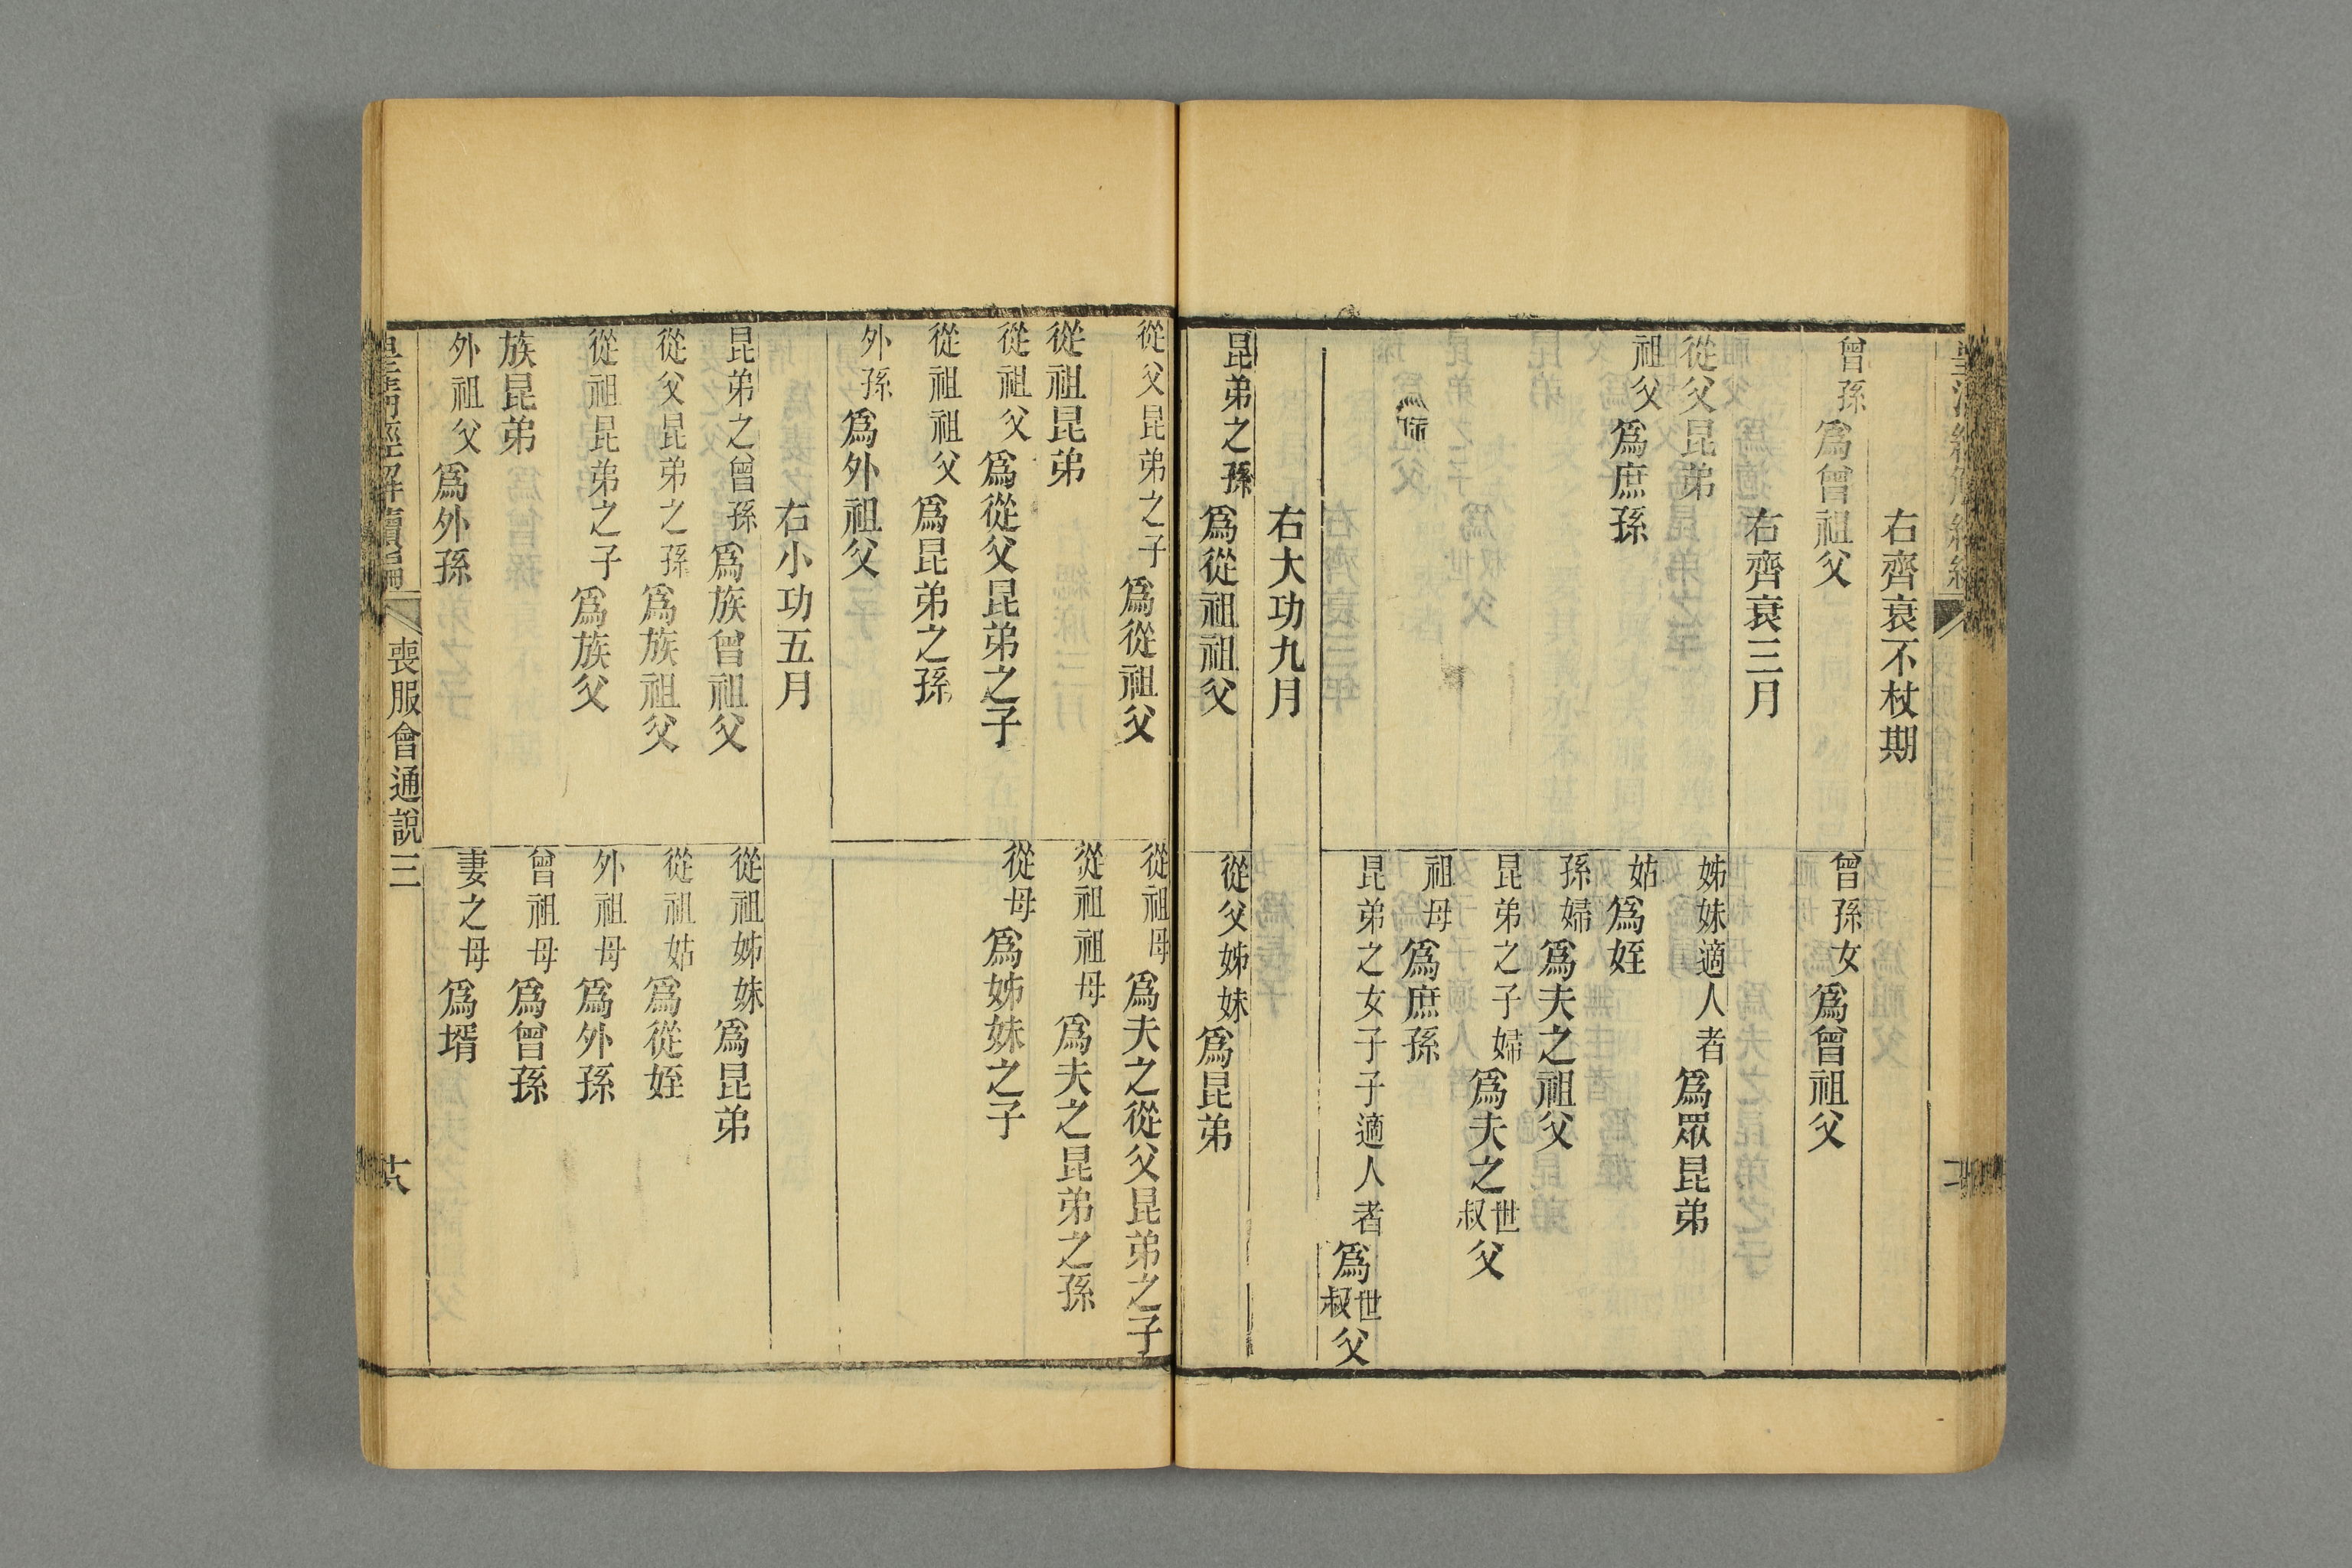 右齊衰不杖期
曾孫爲曾祖父
曾孫女爲曾祖父
右齊衰三月
從父昆弟
姊妹適人者爲眾昆弟
祖父爲庶孫
姑爲姪
孫婦爲夫之祖父
昆弟之子婦爲夫之世叔父
祖母爲庶孫
昆弟之女子子適人者爲世叔父
右大功九月
昆弟之孫爲從祖祖父
從父姊妹爲昆弟
從父昆弟之子爲從祖父
從祖母爲夫之從父昆弟之子
從祖昆弟
從祖祖母爲夫之昆弟之孫
從祖父爲從父昆弟之子
從母爲姊妹之子
從祖祖父爲昆弟之孫
外孫爲外祖父
右小功五月
昆弟之曾孫爲族曾祖父
從祖姊妹爲昆弟
從父昆弟之孫爲族祖父
從祖姑爲從姪
從祖昆弟之子爲族父
外祖母爲外孫
族昆弟
曾祖母爲曾孫
外祖父爲外孫
妻之母爲壻
皇清經解續編 喪服會通說三 六